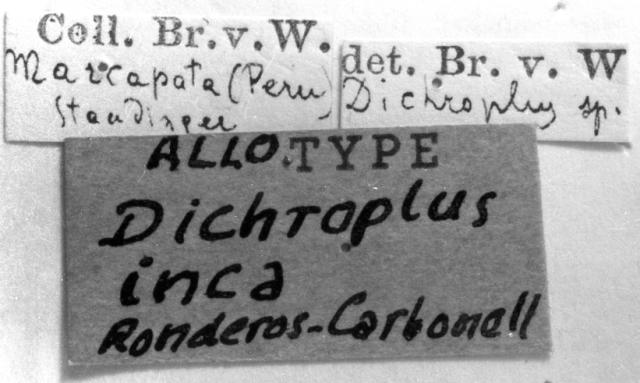 Coll. Br. v. W.
Marcapata (Peru)
Staudinger
det. Br. v. W
Dichroplus sp.
ALLO.TYPE
Dichroplus
inca
Ronderos-Carbonell